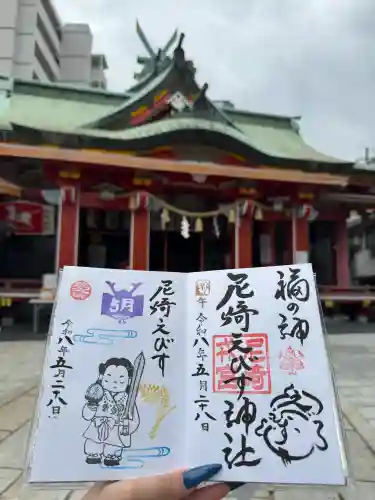 福の神
尼崎えびす神社
令和八年五月二十八日
尼崎えびす
五月
令和八年五月二十八日